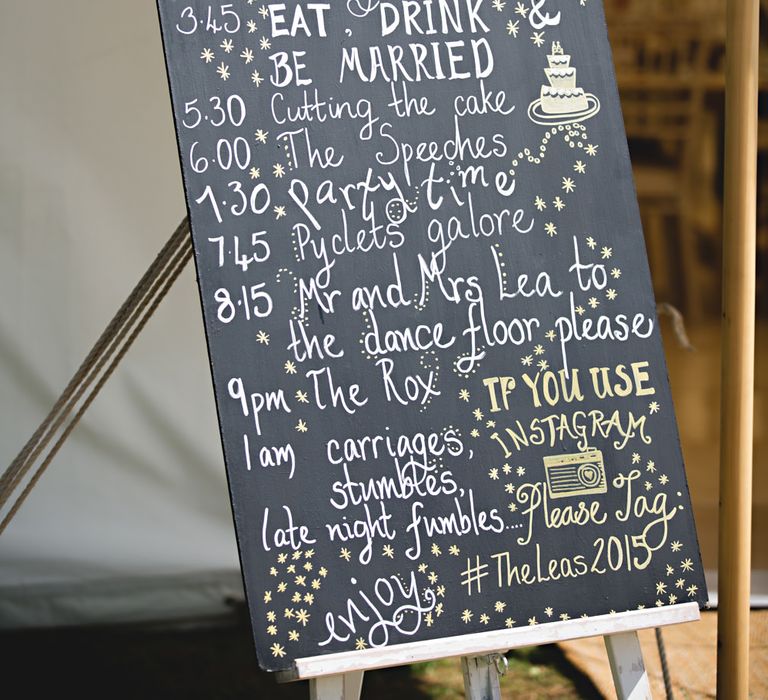 3.45 EAT, DRINK &
BE MARRIED
5.30 Cutting the cake
6.00 The Speeches
7.30 Party time
7.45 Pyclets galore
8.15 Mr and Mrs Lea to
the dance floor please
9pm The Rox
1am carriages,
stumbles,
late night fumbles....
enjoy
IF YOU USE
INSTAGRAM
Please Tag:
#TheLeas2015